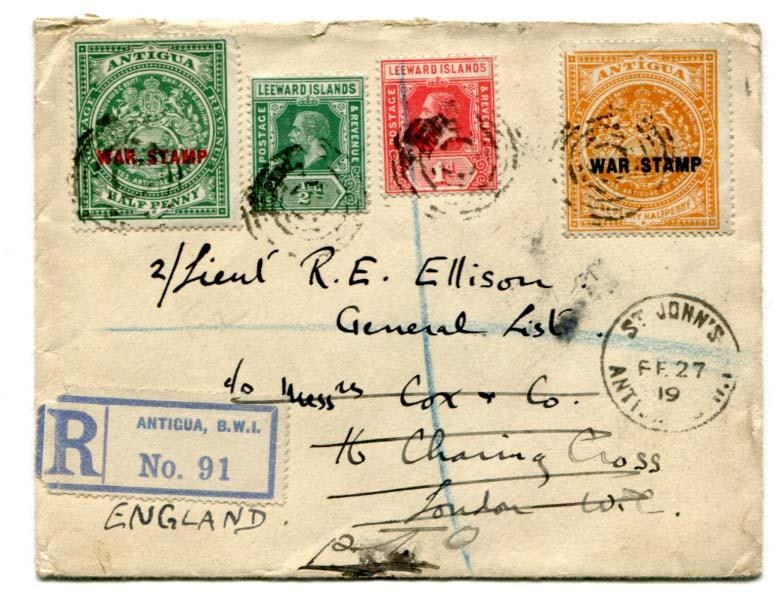 ANTIGUA
POSTAGE
REVENUE
WAR STAMP
HALF PENNY
LEEWARD ISLANDS
POSTAGE
& REVENUE
½D
LEEWARD ISLANDS
POSTAGE
& REVENUE
ANTIGUA
WAR STAMP
HALFPENNY
2/Lieut R. E. Ellison.
General List.
c/o Messrs Cox & Co.
16 Charing Cross
London W.C.
ST JOHN'S
FE 27
19
R
ANTIGUA, B.W.I.
No. 91
ENGLAND.